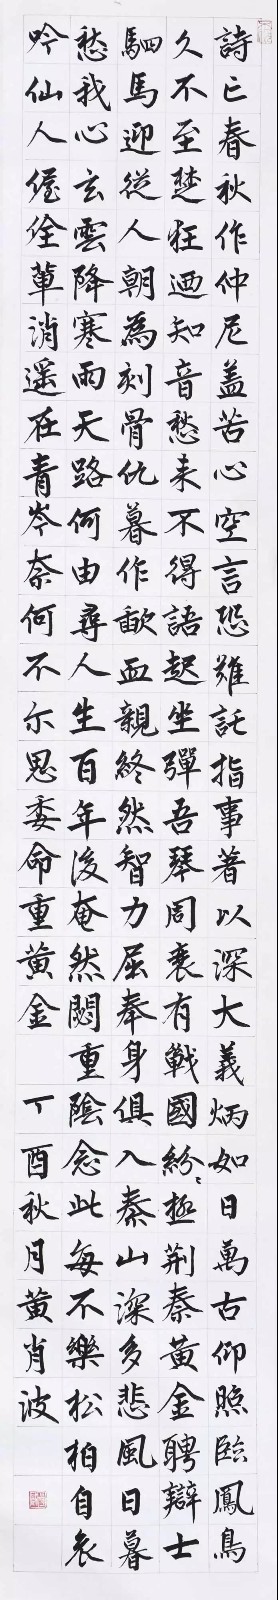 詩亡春秋作仲尼蓋苦心空言恐難託指事著以深大義炳如日萬古仰照臨鳳鳥
久不至楚狂迺知音愁来不得語起坐彈吾琴周衰有戰國紛々極荆秦黄金聘辯士
駟馬迎從人朝為刻骨仇暮作歃血親終然智力屈奉身俱入秦山深多悲風日暮
愁我心玄雲降寒雨天路何由尋人生百年後奄然閟重陰念此每不樂松柏自哀
吟仙人偓佺軰消遥在青岑奈何不尔思委命重黄金 丁酉秋月黄肖波